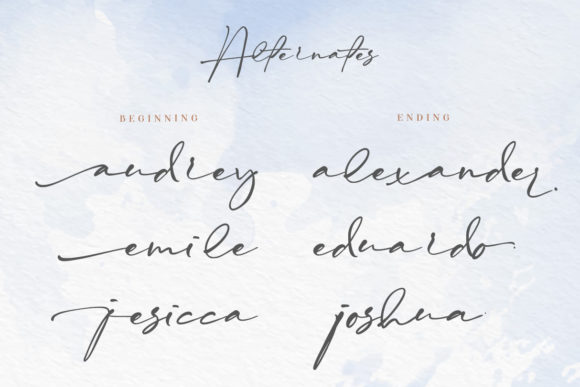 Alternates
BEGINNING ENDING
audrey alexander.
emile eduardo
jesicca joshua